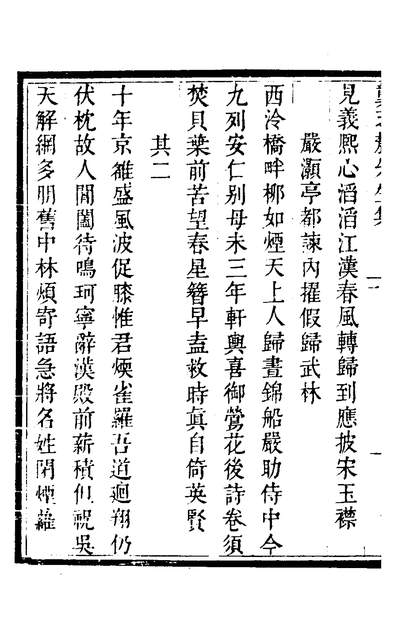 見義熈心滔滔江漢春風轉歸到應披宋玉襟
嚴灝亭都諫內擢假歸武林
西泠橋畔柳如煙天上人歸晝錦船嚴助侍中今
九列安仁别母未三年軒輿喜御鶯花後詩卷須
焚貝葉前苦望春星簪早盍救時眞自倚英賢
其二
十年京雒盛風波促膝惟君煗雀羅吾道迴翔仍
伏枕故人閶闔待鳴珂寧辭漢殿前薪積但祝吳
天解網多朋舊中林煩寄語急將名姓閉煙蘿